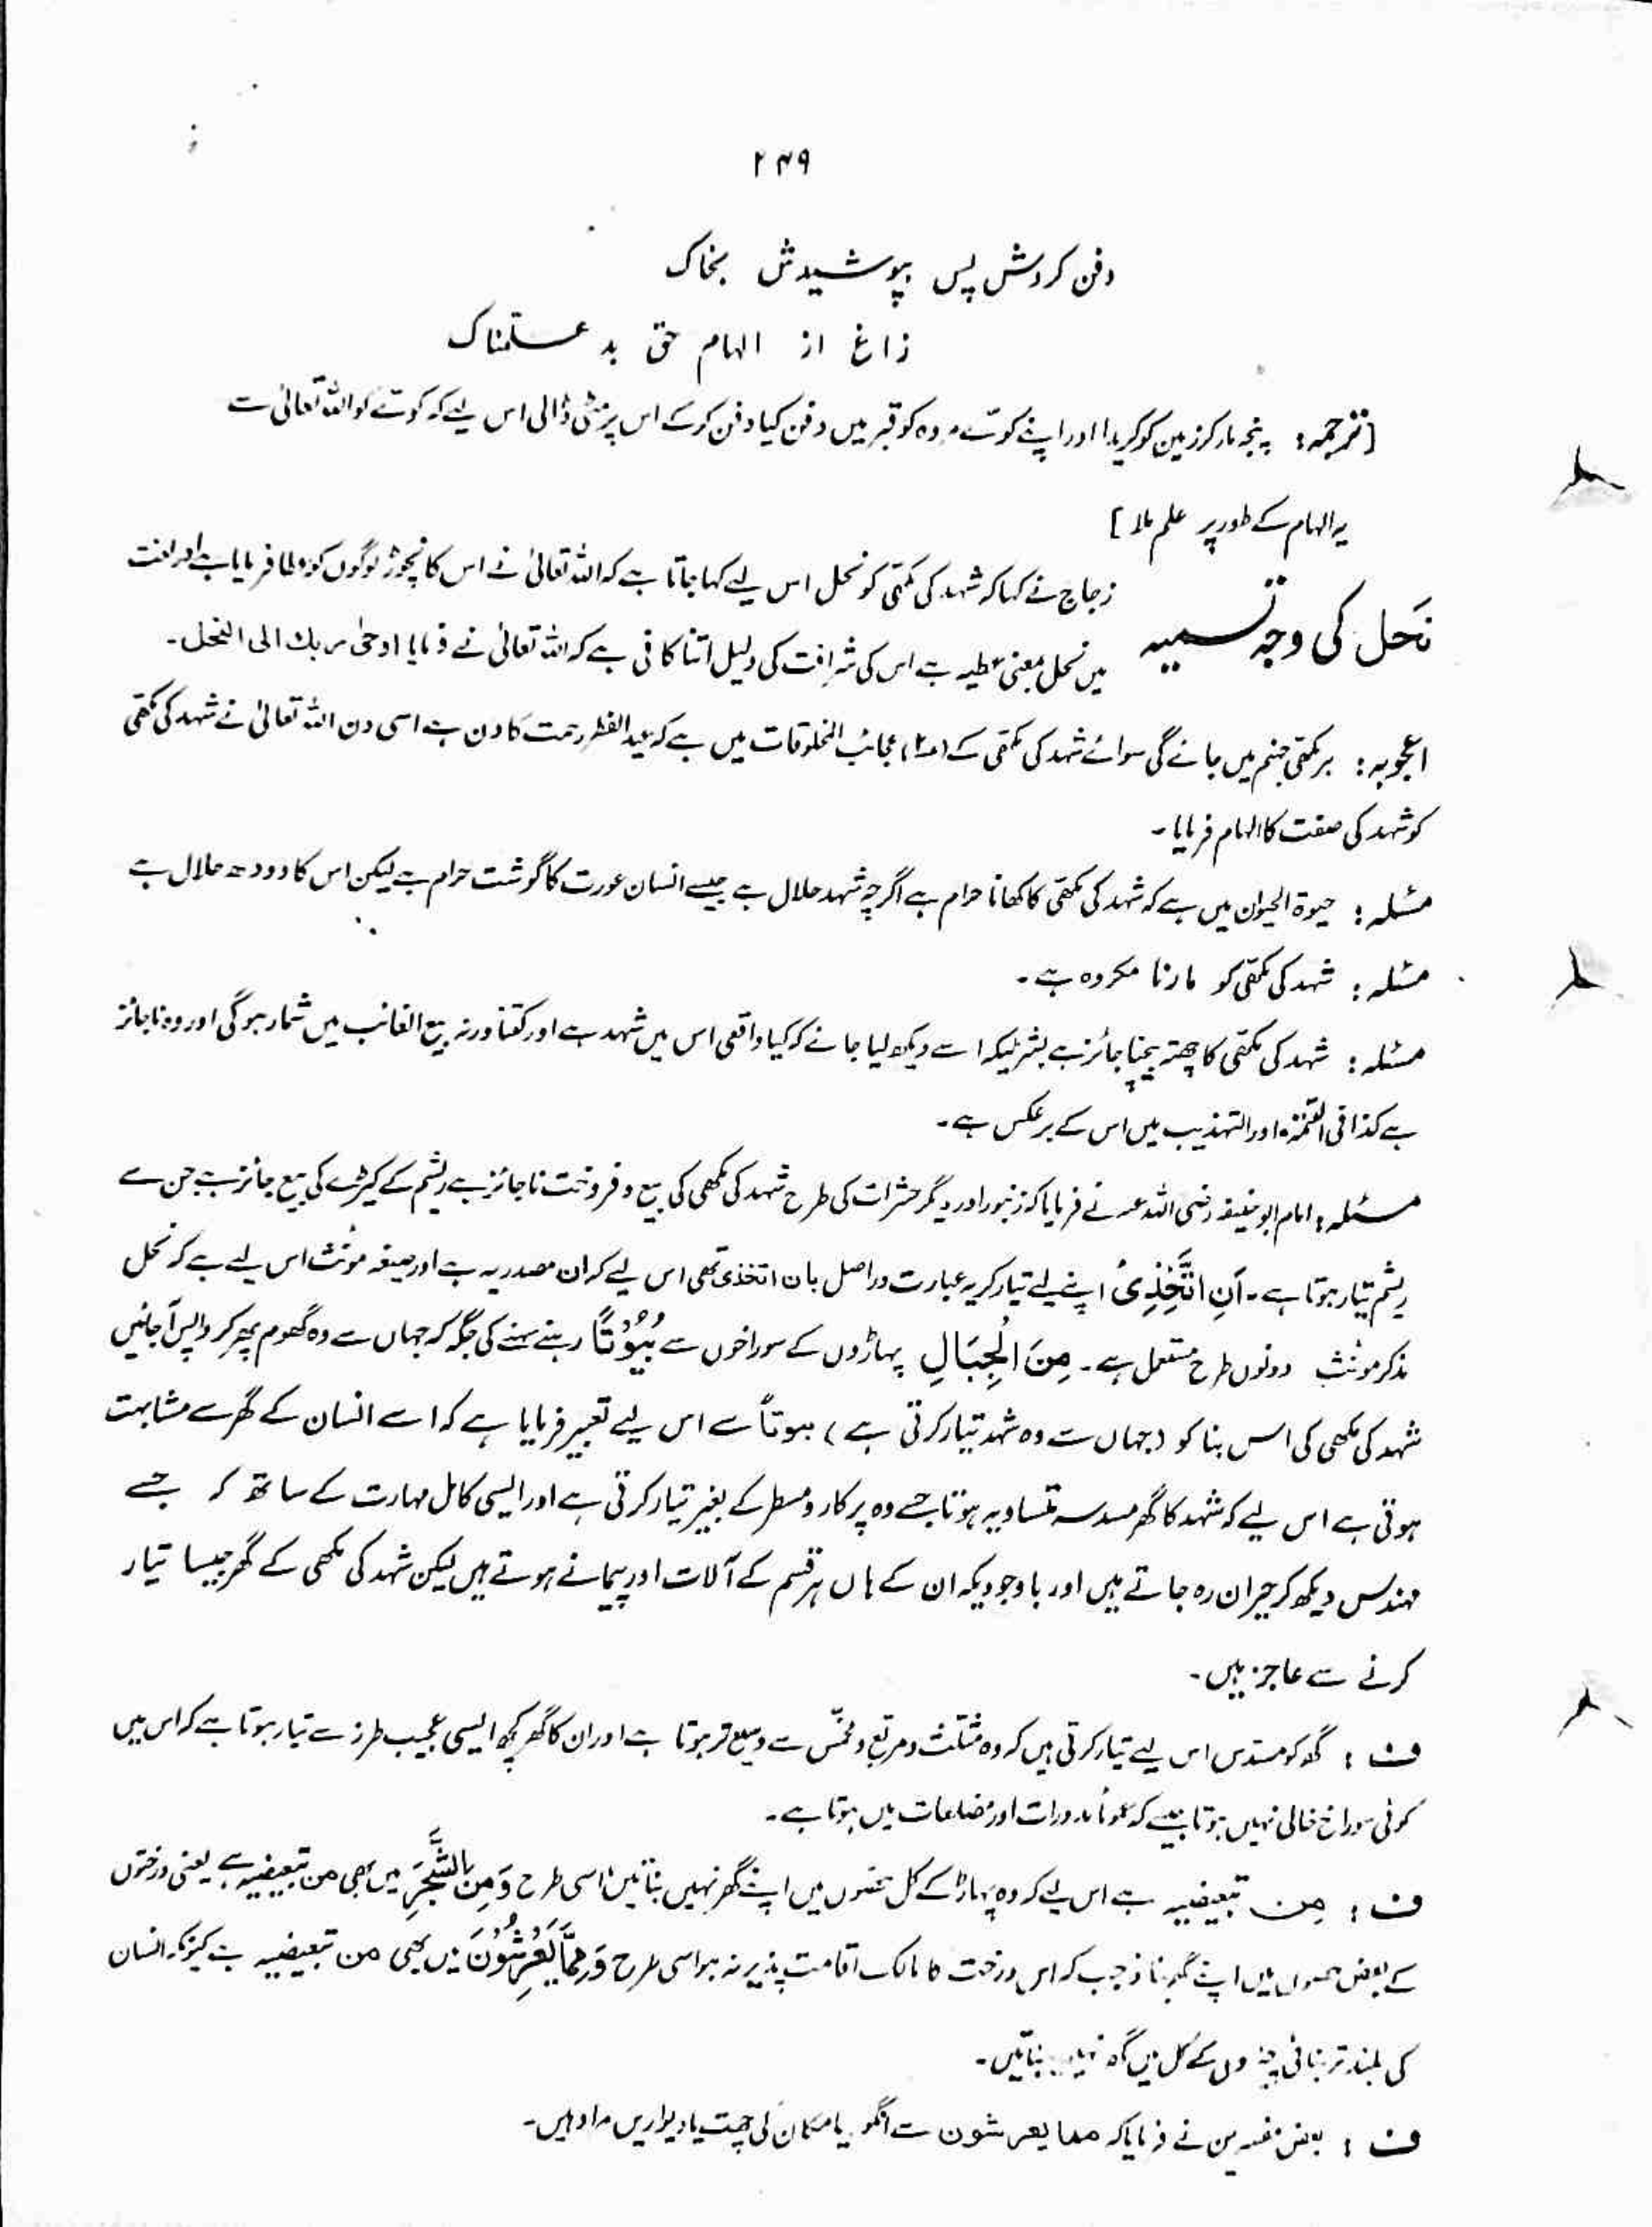 ۲۴۹
دفن کردش پس بپوشیدش بخاک
زاغ از الہام حق بد علمناک
[ترجمہ: پنجہ مار کر زمین کو کریدا اور اپنے کوے مردہ کو قبر میں دفن کیا دفن کر کے اس پر مٹی ڈالی اس لیے کہ کوّے کو اللہ تعالیٰ سے
یہ الہام کے طور پر علم ملا]
نَحل کی وجہ تسمیہ
زجاج نے کہا کہ شہد کی مکھی کو نحل اس لیے کہا جاتا ہے کہ اللہ تعالیٰ نے اس کا نچوڑ لوگوں کو عطا فرمایا ہے اور لغت
میں نحل بمعنی عطیہ ہے اس کی شرافت کی دلیل اتنا کافی ہے کہ اللہ تعالیٰ نے فرمایا اوحیٰ ربك الی النحل۔
اعجوبہ: ہر مکھی جہنم میں جائے گی سوائے شہد کی مکھی کے عجائب المخلوقات میں ہے کہ عید الفطر رحمت کا دن ہے اسی دن اللہ تعالیٰ نے شہد کی مکھی
کو شہد کی صفت کا الہام فرمایا۔
مسئلہ: حیوۃ الحیوان میں ہے کہ شہد کی مکھی کا کھانا حرام ہے اگرچہ شہد حلال ہے جیسے انسان عورت کا گوشت حرام ہے لیکن اس کا دودھ حلال ہے
مسئلہ: شہد کی مکھی کو مارنا مکروہ ہے۔
مسئلہ: شہد کی مکھی کا چھتہ بیچنا جائز ہے بشرطیکہ اسے دیکھ لیا جائے کہ کیا واقعی اس میں شہد ہے اور کتنا ورنہ بیع الغائب میں شمار ہوگی اور وہ ناجائز
ہے کذا فی اور التہذیب میں اس کے برعکس ہے۔
مسئلہ: امام ابو حنیفہ رضی اللہ عنہ نے فرمایا کہ زنبور اور دیگر حشرات کی طرح شہد کی مکھی کی بیع و فروخت ناجائز ہے ریشم کے کیڑے کی بیع جائز ہے جن سے
ریشم تیار ہوتا ہے۔ اَنِ اتَّخِذِیْ اپنے لیے تیار کر یہ عبارت دراصل بان اتخذی تھی اس لیے کہ ان مصدریہ ہے اور صیغہ مونث اس لیے ہے کہ نحل
مذکر مونث دونوں طرح مستعمل ہے۔ مِنَ الْجِبَالِ پہاڑوں کے سوراخوں سے بُیُوْتًا رہنے سہنے کی جگہ کہ جہاں سے وہ گھوم پھر کر واپس آ جائیں
شہد کی مکھی کی اس بنا کو (جہاں سے وہ شہد تیار کرتی ہے) بیوتاً سے اس لیے تعبیر فرمایا ہے کہ اسے انسان کے گھر سے مشابہت
ہوتی ہے اس لیے کہ شہد کا گھر مسدسہ متساویہ ہوتا جسے وہ پرکار و مسطر کے بغیر تیار کرتی ہے اور ایسی کامل مہارت کے ساتھ کہ جسے
مہندس دیکھ کر حیران رہ جاتے ہیں اور باوجودیکہ ان کے ہاں ہر قسم کے آلات اور پیمانے ہوتے ہیں لیکن شہد کی مکھی کے گھر جیسا تیار
کرنے سے عاجز ہیں۔
ف: گھر کو مسدس اس لیے تیار کرتی ہیں کہ وہ مثلث و مربع و مخمّس سے وسیع تر ہوتا ہے اور ان کا گھر کچھ ایسی عجیب طرز سے تیار ہوتا ہے کہ اس میں
کوئی سوراخ خالی نہیں ہوتا جیسے کہ عموماً مدورات اور مضلعات میں ہوتا ہے۔
ف: مِن تبعیضیہ ہے اس لیے کہ وہ پہاڑ کے کل حصوں میں اپنے گھر نہیں بناتیں اسی طرح وَمِنَ الشَّجَرِ میں بھی من تبعیضیہ ہے یعنی درختوں
کے بعض حصوں میں اپنے گھر بنا جب کہ اس درخت کا مالک اقامت پذیر نہ ہو اسی طرح وَمِمَّا یَعْرِشُوْنَ میں بھی من تبعیضیہ ہے کیونکہ انسان
کی بلند تر بنائی چیزوں کے کل میں گھر نہیں بناتیں۔
ف: بعض مفسرین نے فرمایا کہ مما یعرشون سے انگور یا مکان کی چھت یا دیواریں مراد ہیں۔